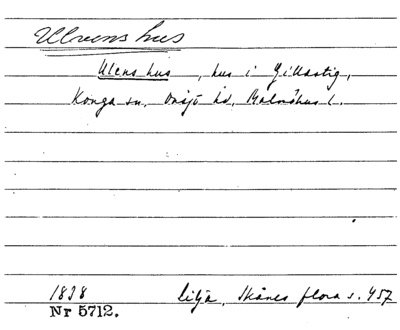 Ulvens hus
Ulens hus, hus i Gillastig,
Konga sn, Onsjö hd, Malmöhus l.
1838 Lilja, Skånes flora s. 457
Nr 5712.